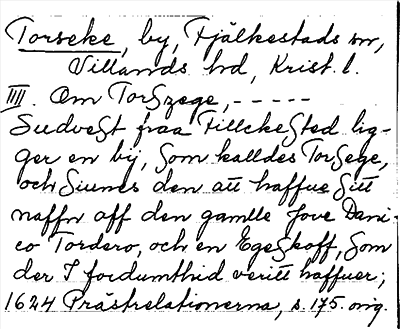 Torseke, by, Fjälkestads sn,
Villands hd, Krist. l.
IIII. Om Torszege, -----
Sudvest fraa Fillckested lig-
ger en bÿ, som kalldes Torsege,
och siunes den att haffue sitt
naffn aff den gamlle Jove Dani-
co Tordero, och en Egeskoff, som
der I fordumthid veritt haffuer;
1624 Prästrelationerna, s. 175. orig.